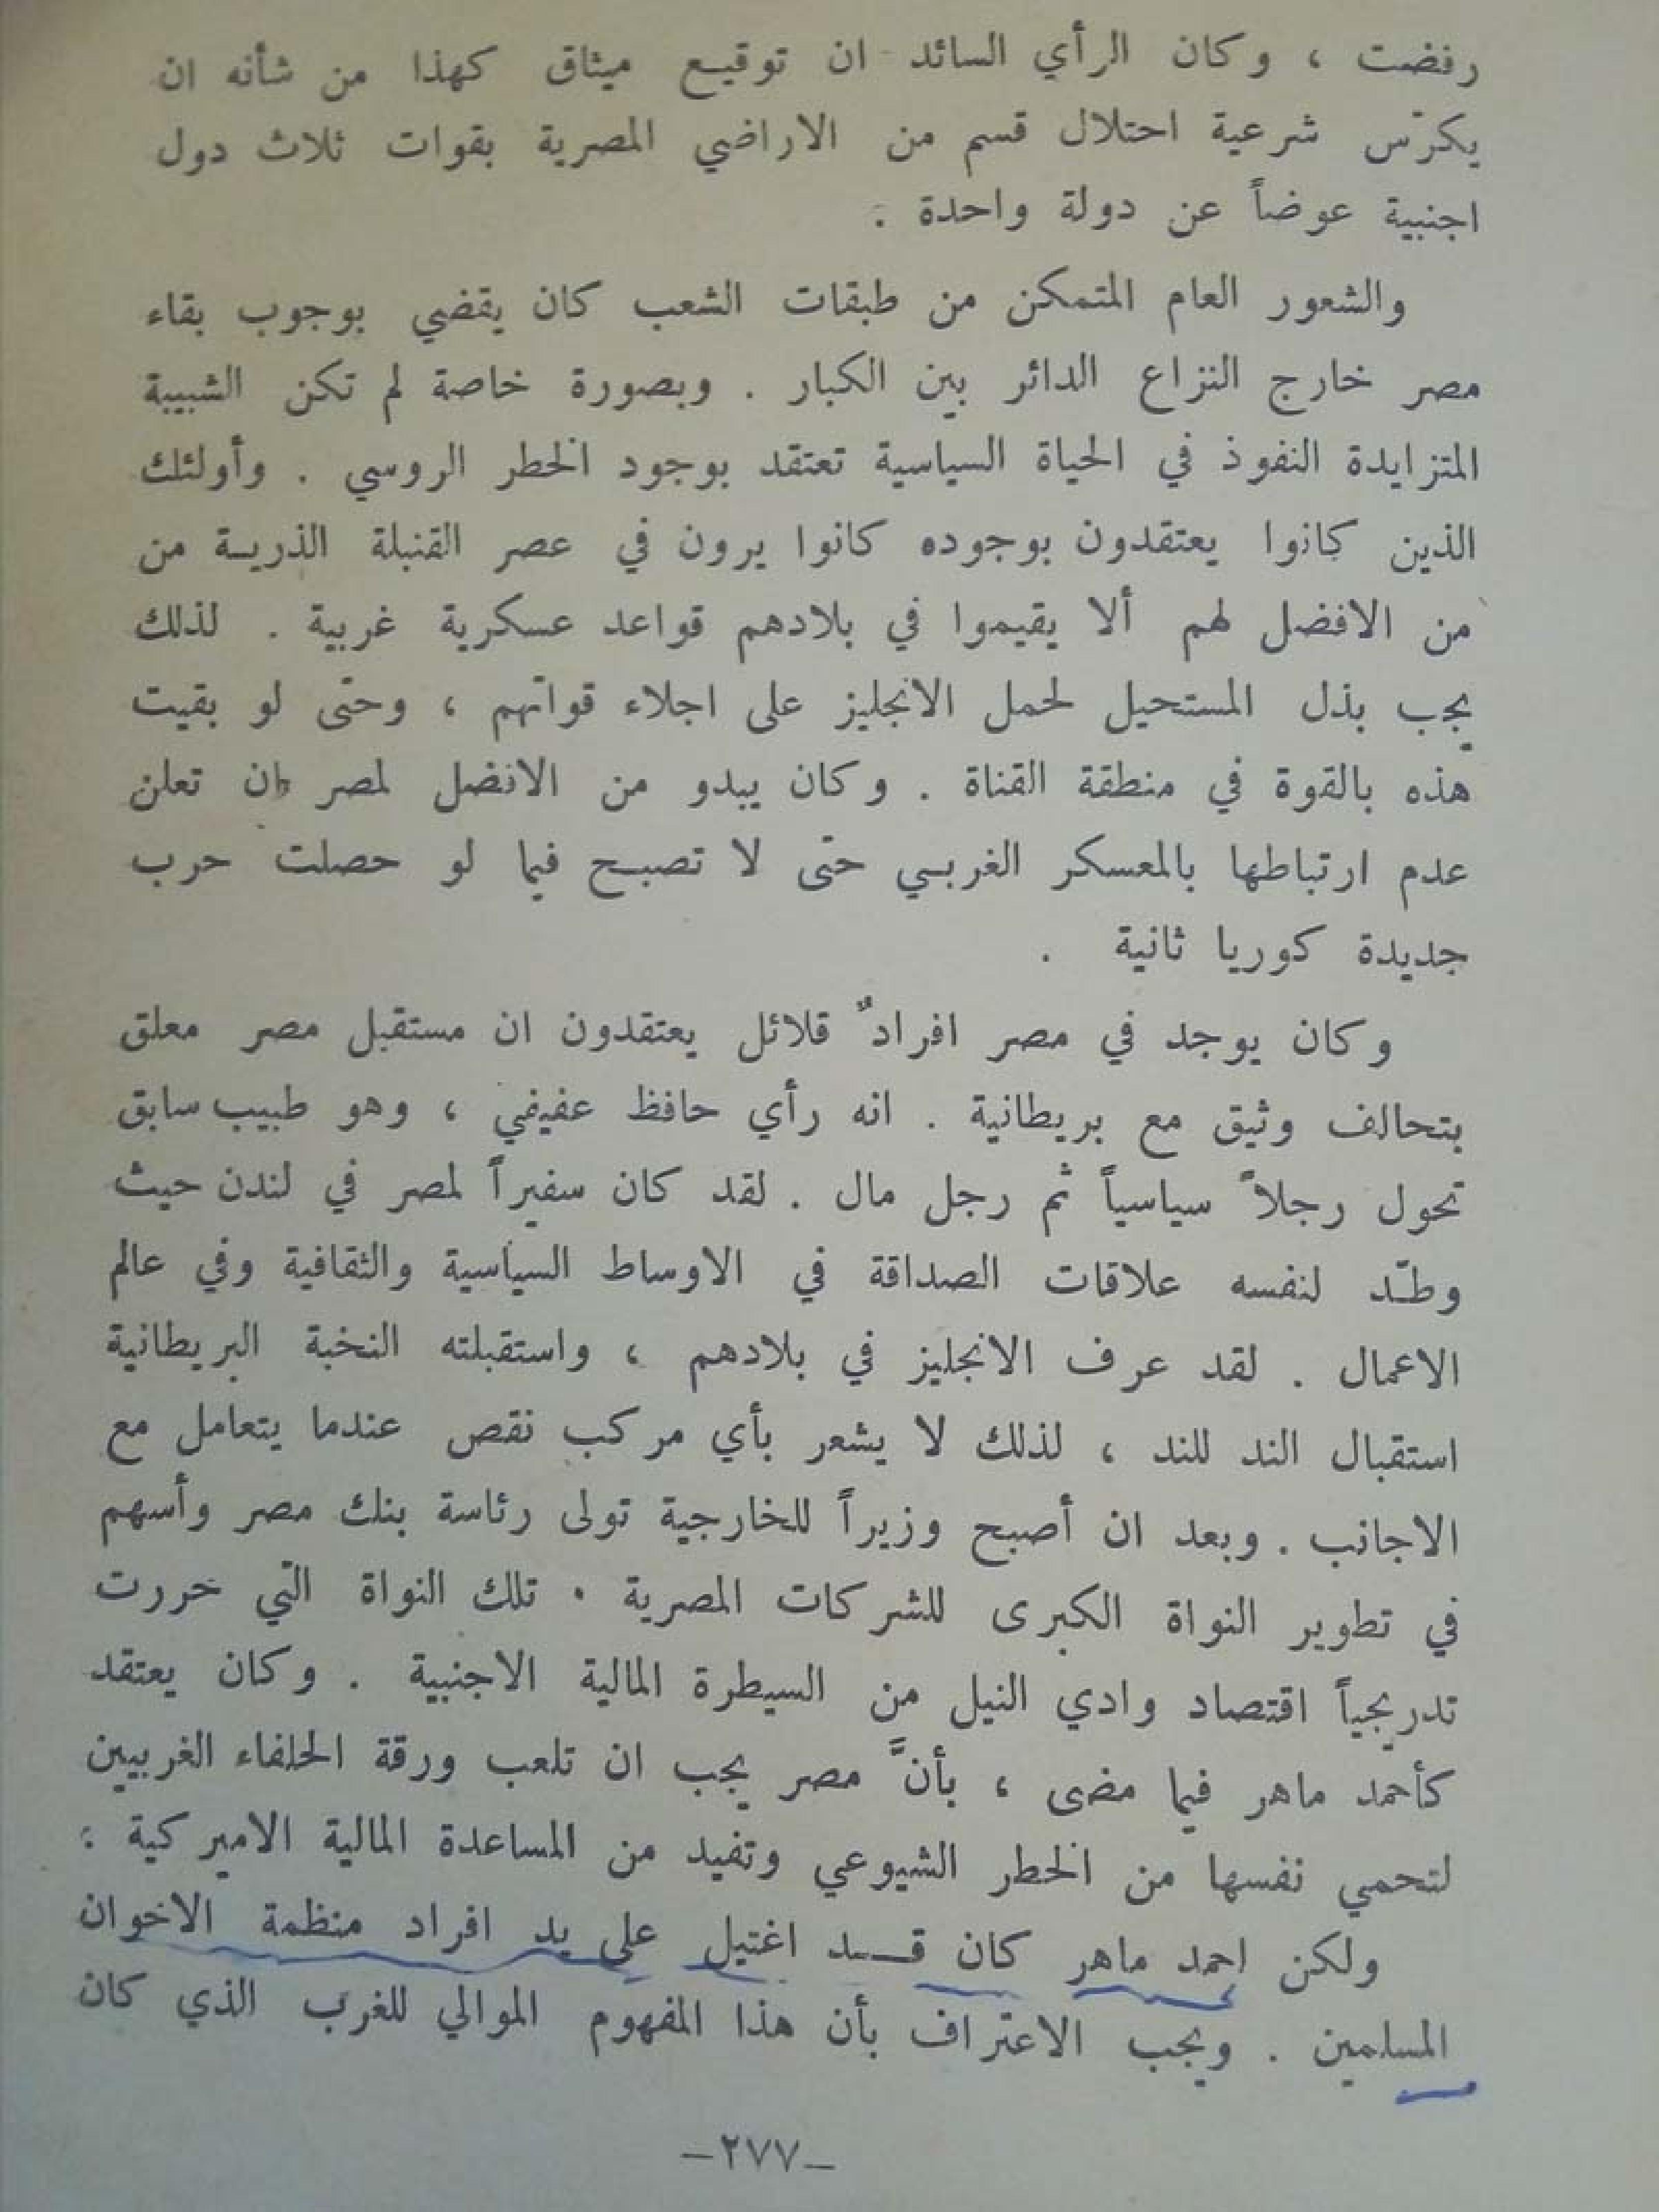 رفضت ، وكان الرأي السائد ان توقيع ميثاق كهذا من شأنه ان
يكرّس شرعية احتلال قسم من الاراضي المصرية بقوات ثلاث دول
اجنبية عوضاً عن دولة واحدة .
والشعور العام المتمكن من طبقات الشعب كان يقضي بوجوب بقاء
مصر خارج النزاع الدائر بين الكبار . وبصورة خاصة لم تكن الشبيبة
المتزايدة النفوذ في الحياة السياسية تعتقد بوجود الخطر الروسي . وأولئك
الذين كانوا يعتقدون بوجوده كانوا يرون في عصر القنبلة الذرية من
من الافضل لهم ألا يقيموا في بلادهم قواعد عسكرية غربية . لذلك
يجب بذل المستحيل لحمل الانجليز على اجلاء قواتهم ، وحتى لو بقيت
هذه بالقوة في منطقة القناة . وكان يبدو من الافضل لمصر ان تعلن
عدم ارتباطها بالمعسكر الغربي حتى لا تصبح فيما لو حصلت حرب
جديدة كوريا ثانية .
وكان يوجد في مصر افرادٌ قلائل يعتقدون ان مستقبل مصر معلق
بتحالف وثيق مع بريطانية . انه رأي حافظ عفيفي ، وهو طبيب سابق
تحول رجلاً سياسياً ثم رجل مال . لقد كان سفيراً لمصر في لندن حيث
وطّد لنفسه علاقات الصداقة في الاوساط السياسية والثقافية وفي عالم
الاعمال . لقد عرف الانجليز في بلادهم ، واستقبلته النخبة البريطانية
استقبال الند للند ، لذلك لا يشعر بأي مركب نقص عندما يتعامل مع
الاجانب . وبعد ان أصبح وزيراً للخارجية تولى رئاسة بنك مصر وأسهم
في تطوير النواة الكبرى للشركات المصرية . تلك النواة التي حررت
تدريجياً اقتصاد وادي النيل من السيطرة المالية الاجنبية . وكان يعتقد
كأحمد ماهر فيما مضى ، بأنَّ مصر يجب ان تلعب ورقة الحلفاء الغربيين
لتحمي نفسها من الخطر الشيوعي وتفيد من المساعدة المالية الاميركية :
ولكن احمد ماهر كان قد اغتيل على يد افراد منظمة الاخوان
المسلمين . ويجب الاعتراف بأن هذا المفهوم الموالي للغرب الذي كان
-٢٧٧-